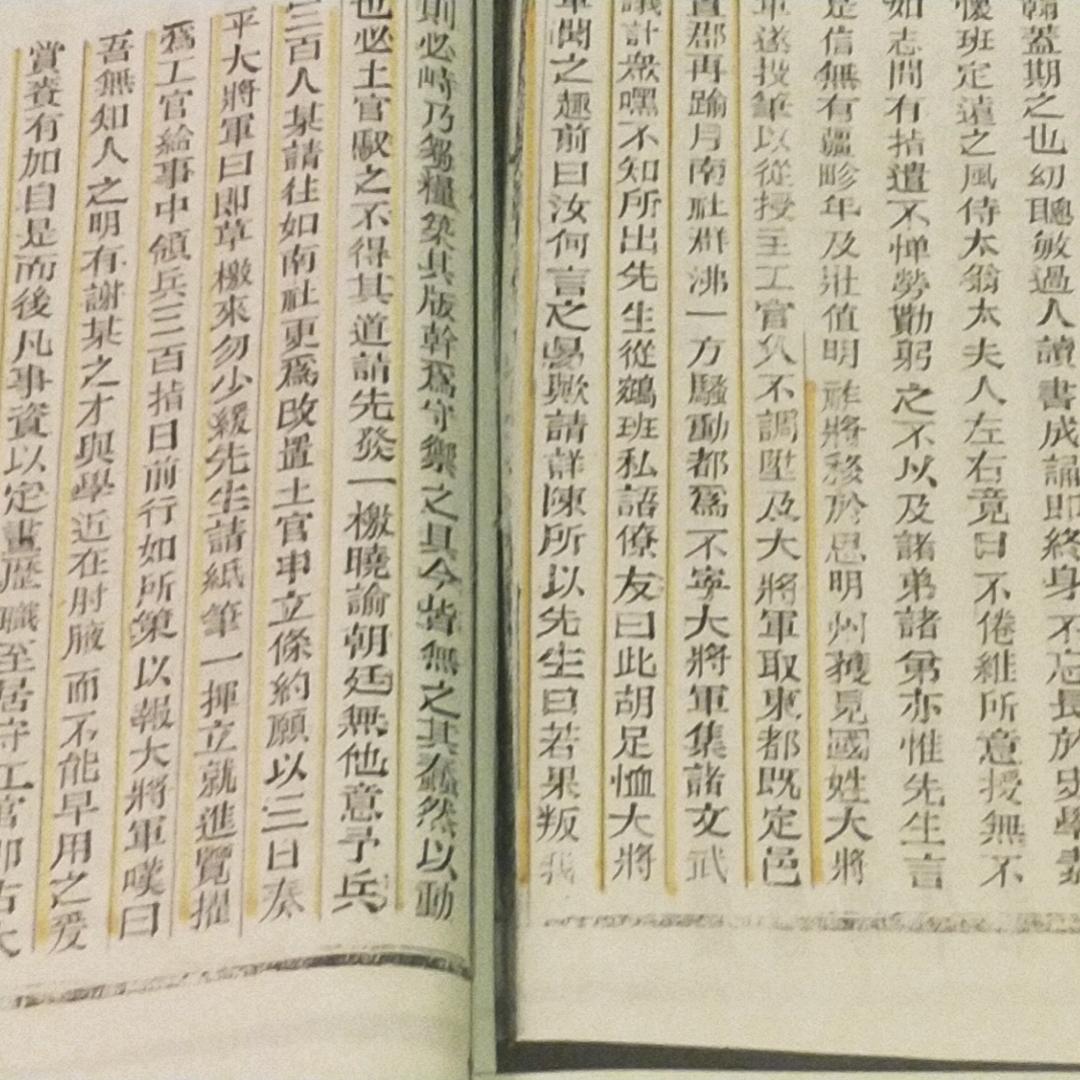 蓋期之也幼聰敏過人讀書成誦即終身不忘長於史學
懷班定遠之風侍太翁太夫人左右竟日不倦維所意授無不
如志間有指遣不憚勞勩躬之不以及諸弟諸弟亦惟先生言
是信無有疆畛年及壯值明祚將移於思明州獲見國姓大將
軍遂投筆以從授至工官久不調壓及大將軍取東都既定邑
置郡再踰月南社群沸一方騷動都為不寧大將軍集諸文武
議計衆嘿不知所出先生從鵷班私語僚友曰此胡足恤大將
軍聞之趣前曰汝何言之易歟請詳陳所以先生曰若果叛我
則必峙乃芻糧築其版幹為守禦之具今皆無之其蠢然以動
也必土官馭之不得其道請先發一檄曉諭朝廷無他意予兵
三百人某請往如南社更為改置土官申立條約願以三日奏
平大將軍曰即草檄來勿少緩先生請紙筆一揮立就進覽擢
為工官給事中領兵三百指日前行如所策以報大將軍嘆曰
吾無知人之明有謝某之才與學近在肘腋而不能早用之爰
賞賚有加自是而後凡事資以定畫歷職至居守工官郎古